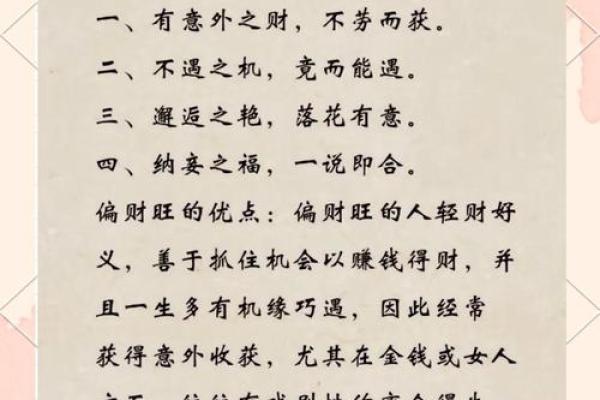 一、有意外之财，不劳而获。
二、不遇之机，竟而能遇。
三、邂逅之艳，落花有意。
四、纳妾之福，一说即合。
偏财旺的优点：偏财旺的人轻财好
义，善于抓住机会以赚钱得财，并
且一生多有机缘巧遇，因此经常
获得意外收获，尤其在金钱或女人